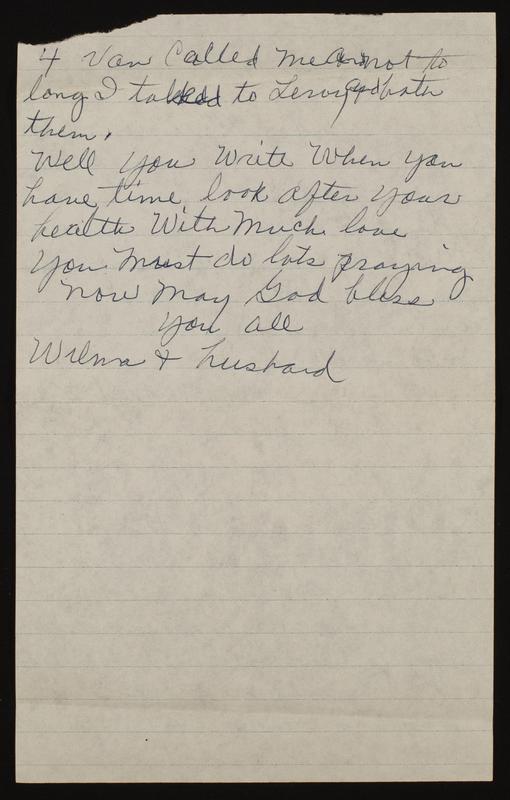 4 Van Called me not to
long I talked to Lewis both
them.
Well you Write When you
have time look after your
health With Much love
You Must do lots praying
now May God bless
you all
Wilma & husband